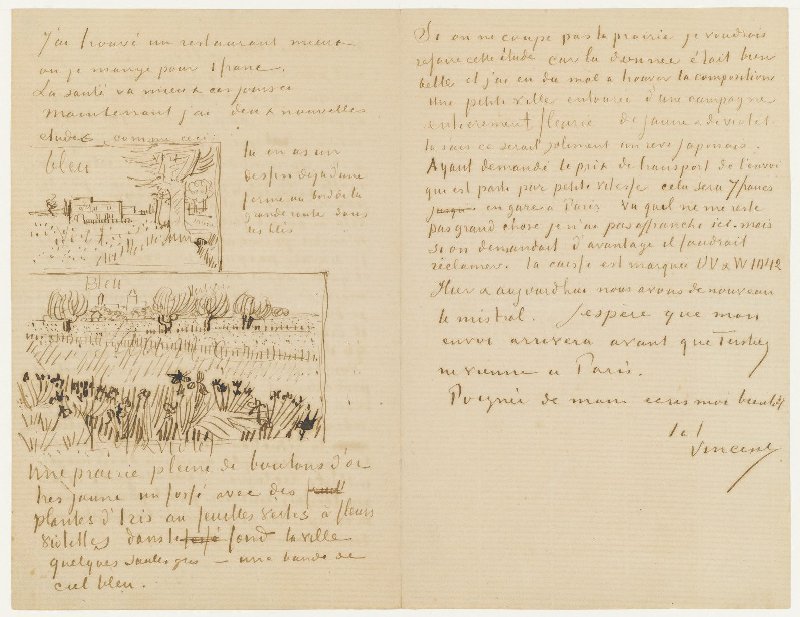 J'ai trouvé un restaurant mieux
ou je mange pour 1 franc.
La santé va mieux ces jours ci
Maintenant j'ai deux nouvelles
etudes comme ceci:
bleu
tu en as un
dessin deja d'une
ferme au bord de la
grande route dans
les blés
Bleu
violet
Une prairie pleine de boutons d'or
tres jaune un fossé avec des
plantes d'Iris au feuilles vertes à fleurs
violettes dans le fond la ville
quelques saules gris – une bande de
ciel bleu.
Si on ne coupe pas la prairie je voudrais
refaire cette étude car la donnée était bien
belle et j'ai eu du mal a trouver la composition
Une petite ville entourée d'une campagne
entierement fleurie de jaune & de violet.
tu sais ce serait joliment un reve japonais.
Ayant demandé le prix de transport de l'envoi
qui est parti par petite vitesse cela sera 7 francs
jusqu' en gare à Paris Vu quil ne me reste
pas grand chose je n'ai pas affranchi ici. mais
si on demandait d'avantage il faudrait
réclamer. la caisse est marquée UV & W 1042
Hier & aujourdhui nous avons de nouveau
le mistral. J'espère que mon
envoi arrivera avant que Tersteeg
ne vienne à Paris.
Poignée de main ecris moi bientot
t. à t.
Vincent